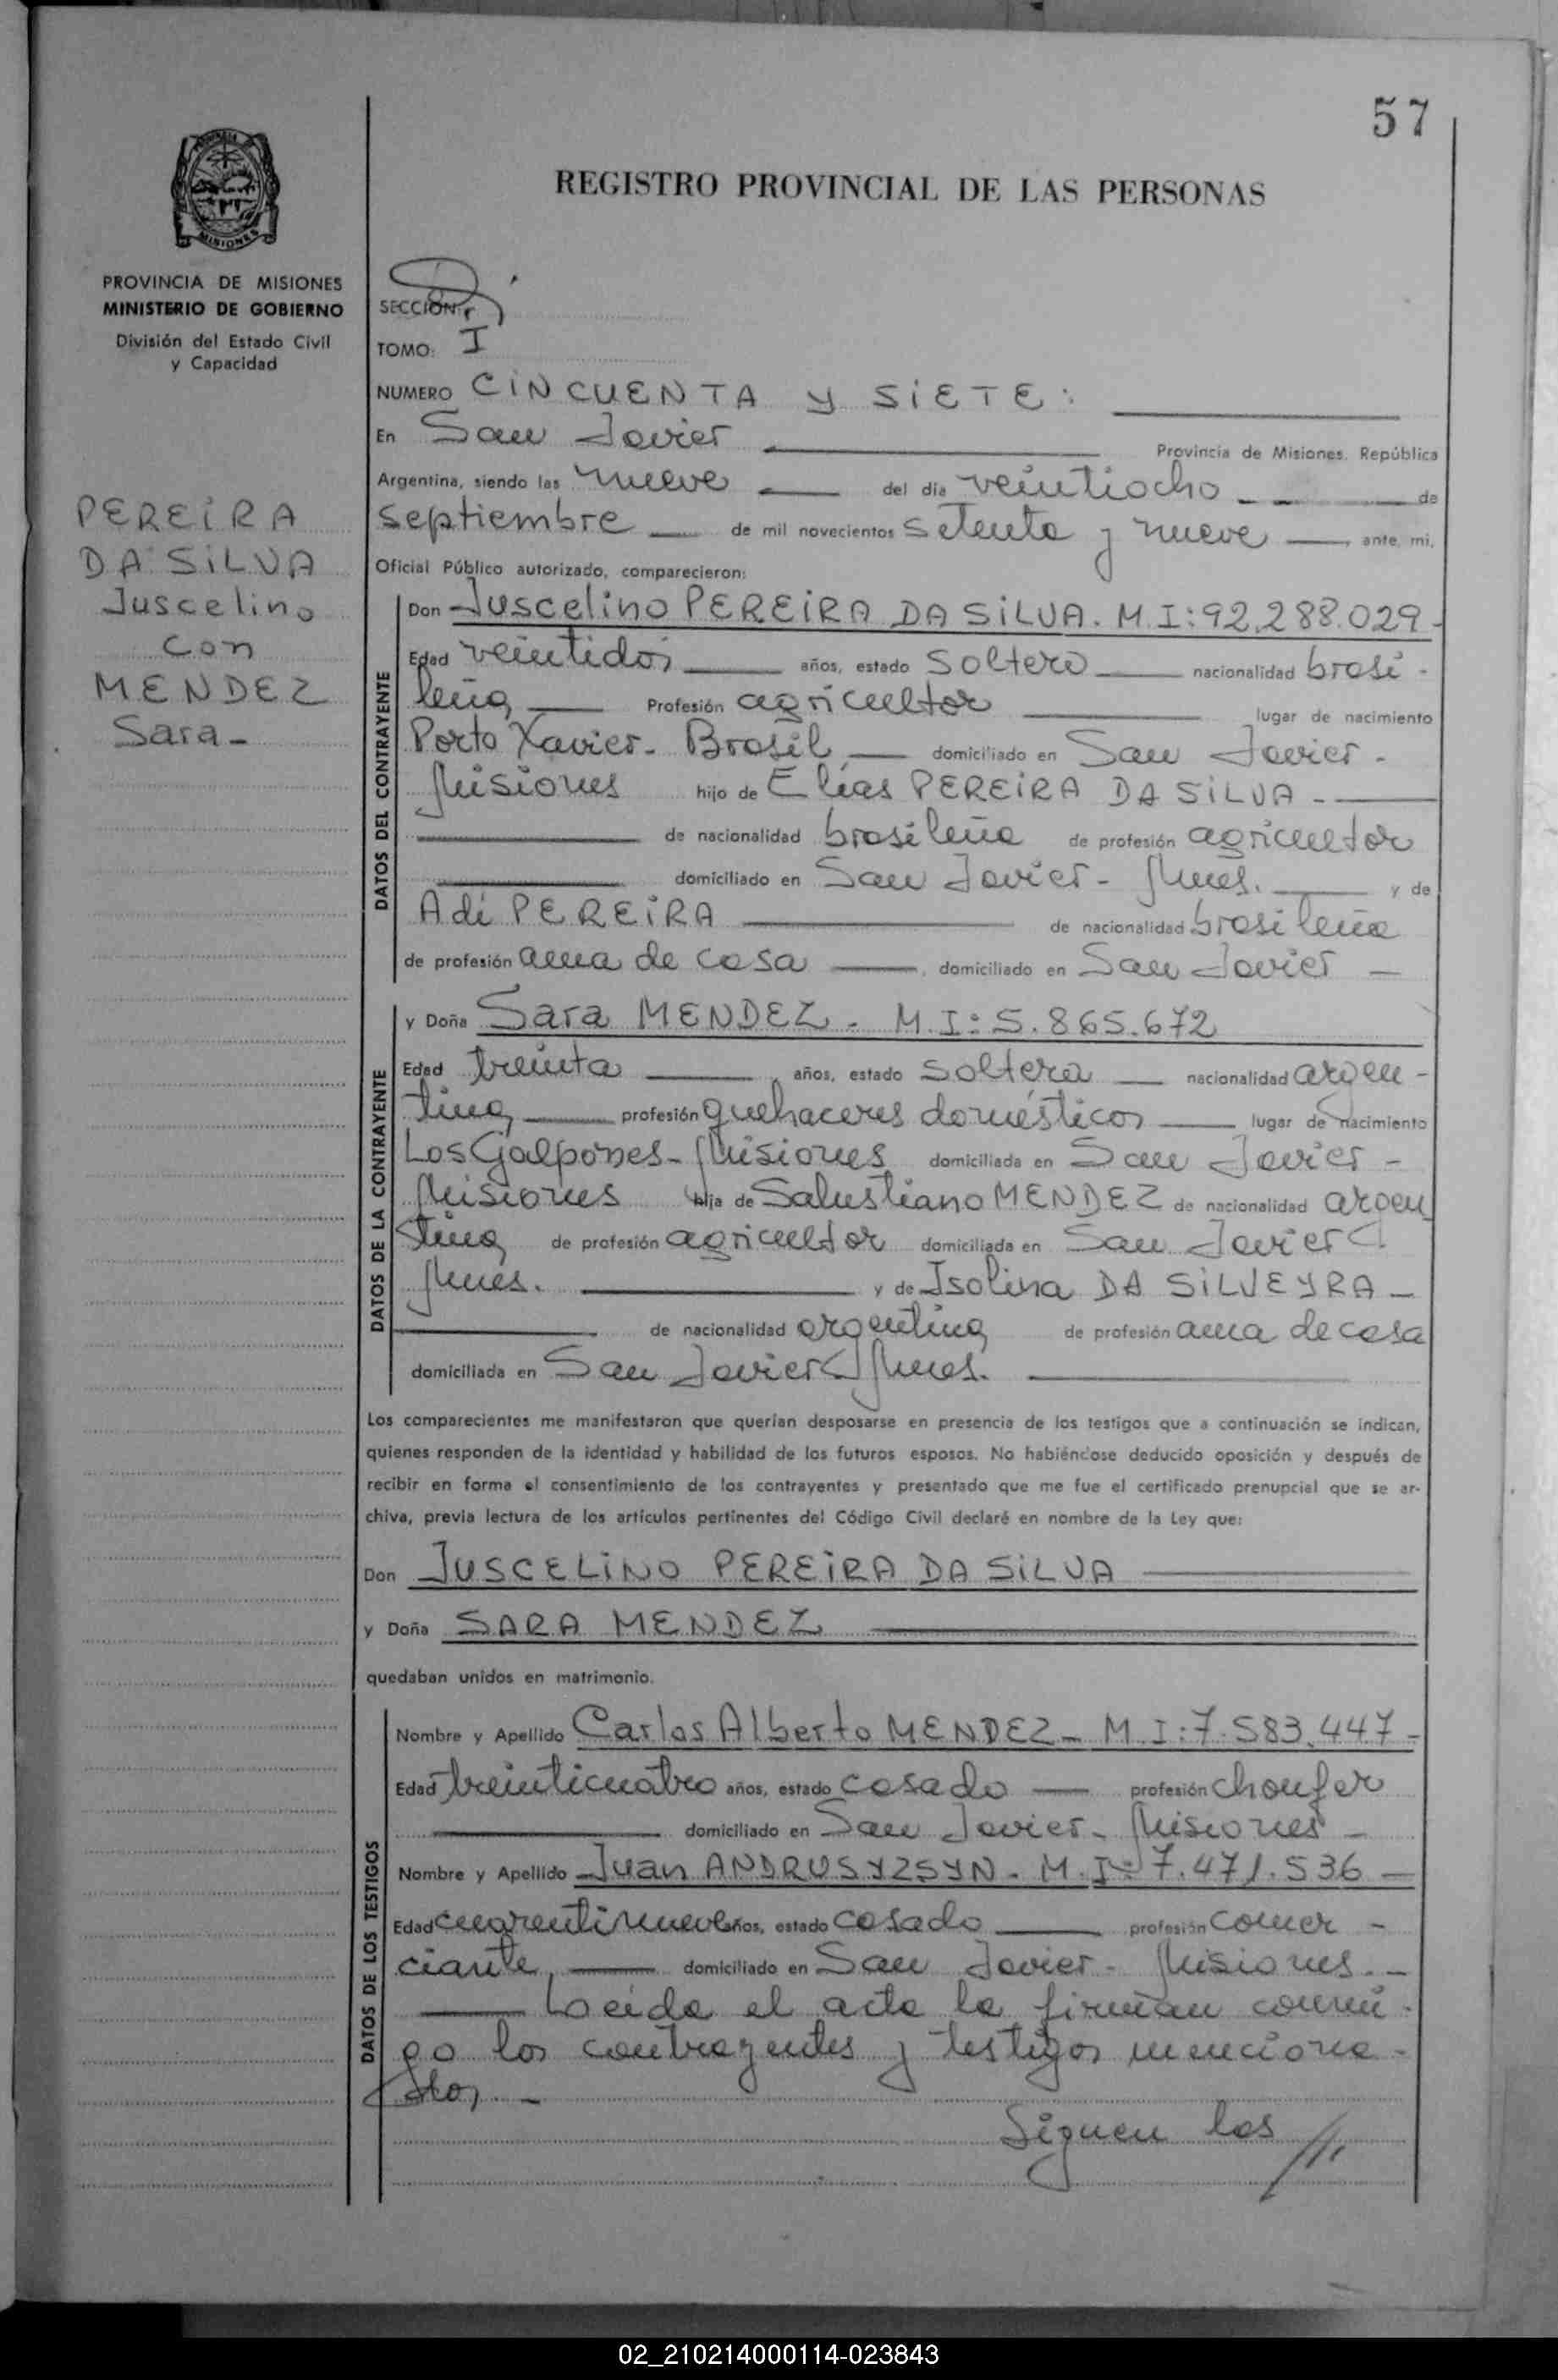 57
REGISTRO PROVINCIAL DE LAS PERSONAS
MISIONES
PROVINCIA DE MISIONES
MINISTERIO DE GOBIERNO
División del Estado Civil
y Capacidad
PEREIRA
DA SILVA
Juscelino
con
MENDEZ
Sara-
SECCION:
TOMO: I
NUMERO CINCUENTA y SIETE:
En San Javier Provincia de Misiones. República
Argentina, siendo las nueve del día veintiocho de
septiembre de mil novecientos setenta y nueve, ante, mi,
Oficial Público autorizado, comparecieron:
DATOS DEL CONTRAYENTE
Don Juscelino PEREIRA DA SILVA. M.I: 92.288.029-
Edad veintidos años, estado soltero nacionalidad brasi-
leña, Profesión agricultor lugar de nacimiento
Porto Xavier- Brasil domiciliado en San Javier-
Misiones hijo de Elías PEREIRA DA SILVA-
de nacionalidad brasileña de profesión agricultor
domiciliado en San Javier- Mnes. y de
Adi PEREIRA de nacionalidad brasileña
de profesión ama de casa, domiciliado en San Javier
DATOS DE LA CONTRAYENTE
y Doña Sara MENDEZ. M.I: 5.865.672
Edad treinta, años, estado soltera nacionalidad argen-
tina, profesión quehaceres domésticos lugar de nacimiento
Los Galpones- Misiones domiciliada en San Javier-
Misiones hija de Salustiano MENDEZ de nacionalidad argen
tina, de profesión agricultor domiciliada en San Javier
Mnes. y de Isolina DA SILVEYRA-
de nacionalidad argentina, de profesión ama de casa
domiciliada en San Javier Mnes.
Los comparecientes me manifestaron que querían desposarse en presencia de los testigos que a continuación se indican,
quienes responden de la identidad y habilidad de los futuros esposos. No habiéndose deducido oposición y después de
recibir en forma el consentimiento de los contrayentes y presentado que me fue el certificado prenupcial que se ar-
chiva, previa lectura de los artículos pertinentes del Código Civil declaré en nombre de la Ley que:
Don JUSCELINO PEREIRA DA SILVA
y Doña SARA MENDEZ
quedaban unidos en matrimonio.
DATOS DE LOS TESTIGOS
Nombre y Apellido Carlos Alberto MENDEZ- M.I: 7.583.447-
Edad treinticuatro años, estado casado profesión choufer
domiciliado en San Javier- Misiones-
Nombre y Apellido Juan ANDRUSYZSYN- M.I: 7.471.536-
Edad cuarentinueve años, estado casado profesión comer-
ciante, domiciliado en San Javier- Misiones.-
Leída el acta la firman conmi-
go los contrayentes y testigos menciona-
dos.-
Siguen las //.
02_210214000114-023843